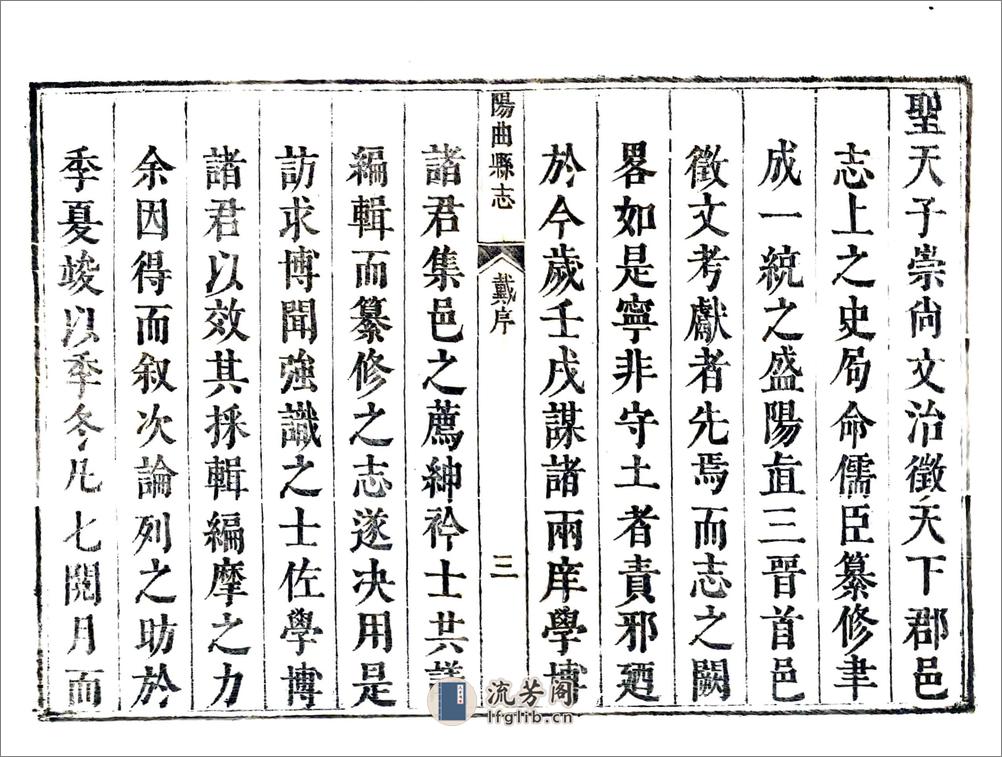 聖天子崇尙文治徵天下郡邑
志上之史局命儒臣纂修聿
成一統之盛陽直三晉首邑
徵文考獻者先焉而志之闕
畧如是寧非守土者責邪廼
於今歲壬戌謀諸兩庠學博
陽曲縣志
戴序
三
諸君集邑之薦紳衿士共議
編輯而纂修之志遂決用是
訪求博聞強識之士佐學博
諸君以效其採輯編摩之力
余因得而叙次論列之昉於
季夏竣以季冬凡七閱月而
流芳阁
lfglib.cn